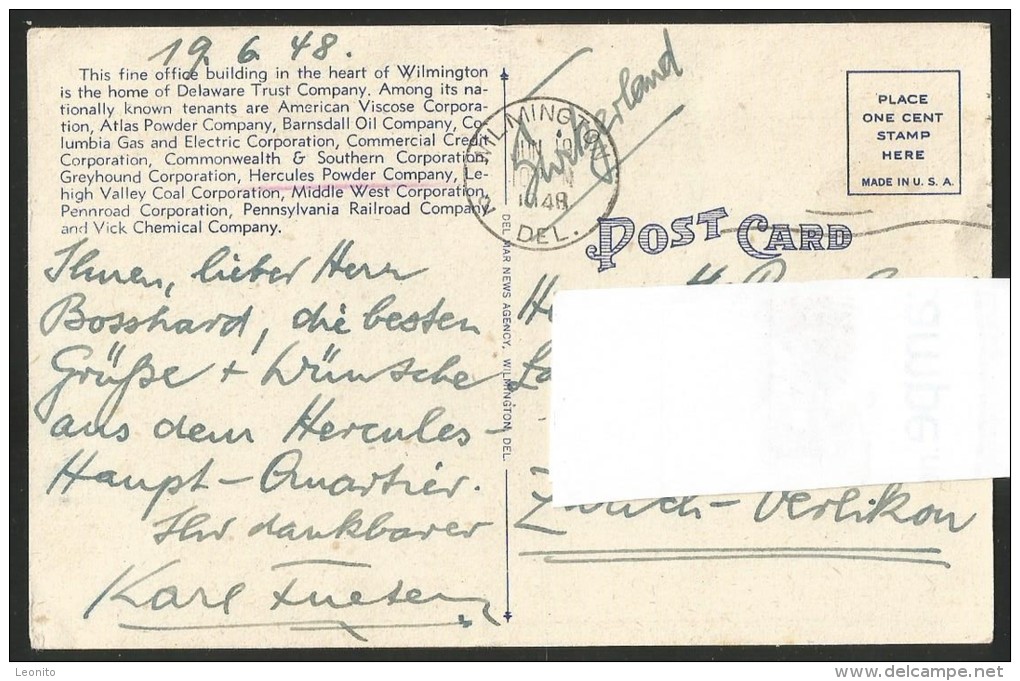 19. 6. 48.
This fine office building in the heart of Wilmington
is the home of Delaware Trust Company. Among its na-
tionally known tenants are American Viscose Corpora-
tion, Atlas Powder Company, Barnsdall Oil Company, Co-
lumbia Gas and Electric Corporation, Commercial Credit
Corporation, Commonwealth & Southern Corporation,
Greyhound Corporation, Hercules Powder Company, Le-
high Valley Coal Corporation, Middle West Corporation,
Pennroad Corporation, Pennsylvania Railroad Company
and Vick Chemical Company.
Ihnen, lieber Herr
Bosshard, die besten
Grüße + Wünsche
aus dem Hercules-
Haupt-Quartier.
Ihr dankbarer
Karl
DEL MAR NEWS AGENCY, WILMINGTON, DEL.
WILMINGTON
JUN 19
1948
DEL.
Switzerland
PLACE
ONE CENT
STAMP
HERE
MADE IN U. S. A.
POST CARD
Zürich-Oerlikon
Leonito
www.delcampe.net